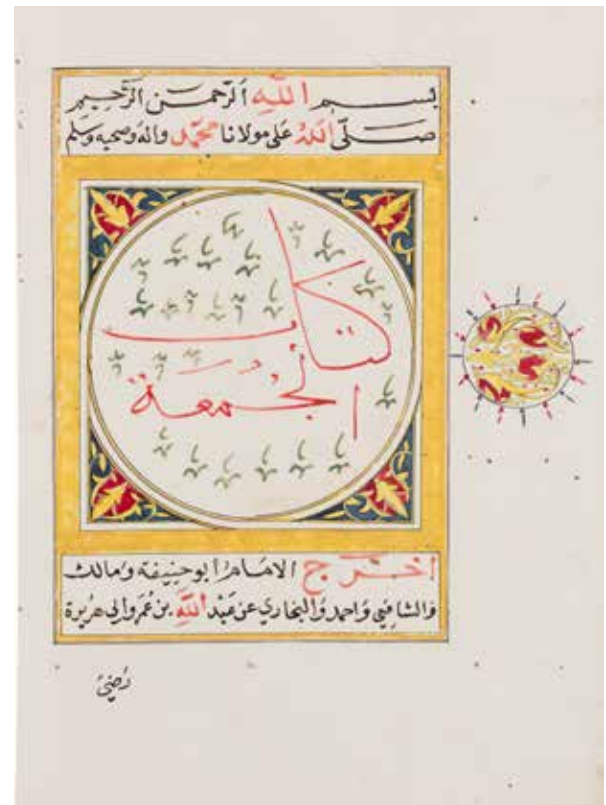 بسم الله الرحمن الرحيم
صلى الله على مولانا محمد واله وصحبه وسلم
كتاب
الجمعة
اخرج الامام ابو حنيفة ومالك
والشافعي واحمد والبخاري عن عبد الله بن عمر وابي هريرة
رضي